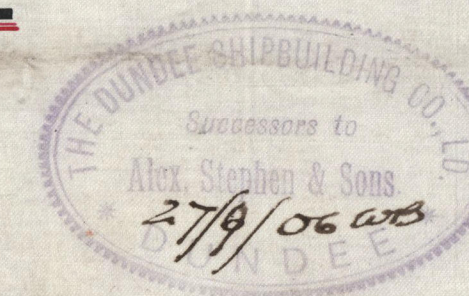 THE DUNDEE SHIPBUILDING CO., LD.
Successors to
Alex. Stephen & Sons.
27/9/06 WB
* DUNDEE *